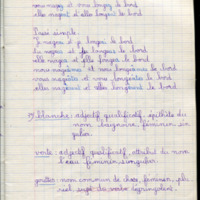 vous nagez et vous longez le bord
elles nagent et elles longent le bord
Passé simple :
Je nageai et je longeai le bord
tu nageas et tu longeas le bord
elle nagea et elle longea le bord
nous nageâmes et nous longeâmes le bord
vous nageâtes et vous longeâtes le bord
elles nagèrent et elles longèrent le bord
blanche : adjectif qualificatif, épithète du
nom baignoire, féminin sin
gulier.
verte : adjectif qualificatif, attribut du nom
féminin singulier.
gouttes : nom commun de chose, féminin, plu
riel, sujet du verbe dégringolent.